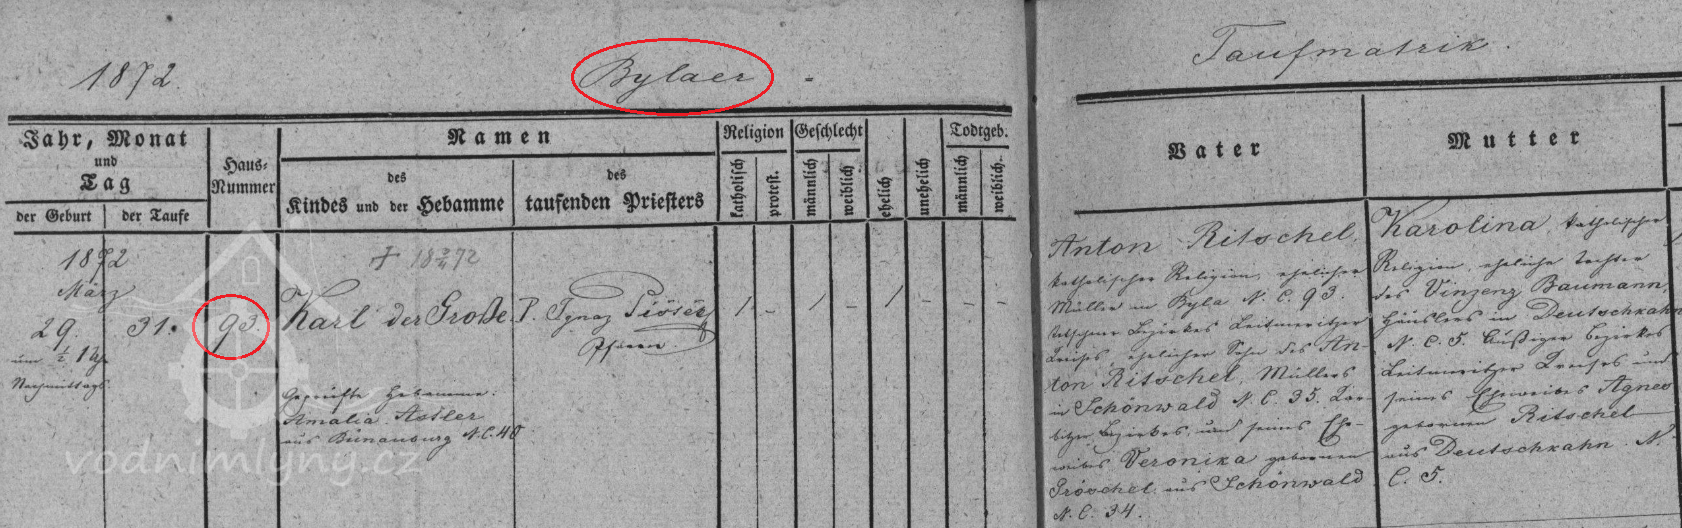 1872.
Bylaer -
Taufmatrik.
Jahr, Monat
und
Tag
der Geburt
der Taufe
Haus-
Nummer
Namen
des
Kindes und der Hebamme
des
taufenden Priesters
Religion
katholisch
protest.
Geschlecht
männlich
weiblich
ehelich
unehelich
Todtgeb.
männlich
weiblich.
Vater
Mutter
1872
März
29.
31.
um ½ 1 Uhr
Nachmittags
93.
Karl der Große.
Geprüfte Hebamme:
Amalia
aus Bünauburg N.C. 40
P. Ignaz
Pfarrer.
1 - 1 - 1 - - -
Anton Ritschel,
katholischer Religion, ehelicher
Müller in Byla N. C. 93.
Tetschner Bezirkes Leitmeritzer
Kreises, ehelicher Sohn des An-
ton Ritschel, Müllers
in Schönwald N. C. 35. Kar-
bitzer Bezirkes, und seines Ehe-
weibes Veronika gebornen
Pröschel aus Schönwald
N. C. 34.
Karolina, katholischer
Religion, eheliche Tochter
des Vinzenz Baumann,
Häuslers in Deutschkahn
N. C. 5. Außiger Bezirkes
Leitmeritzer Kreises und
seines Eheweibes Agnes
gebornen Ritschel
aus Deutschkahn N.
C. 5.
vodnimlyny.cz